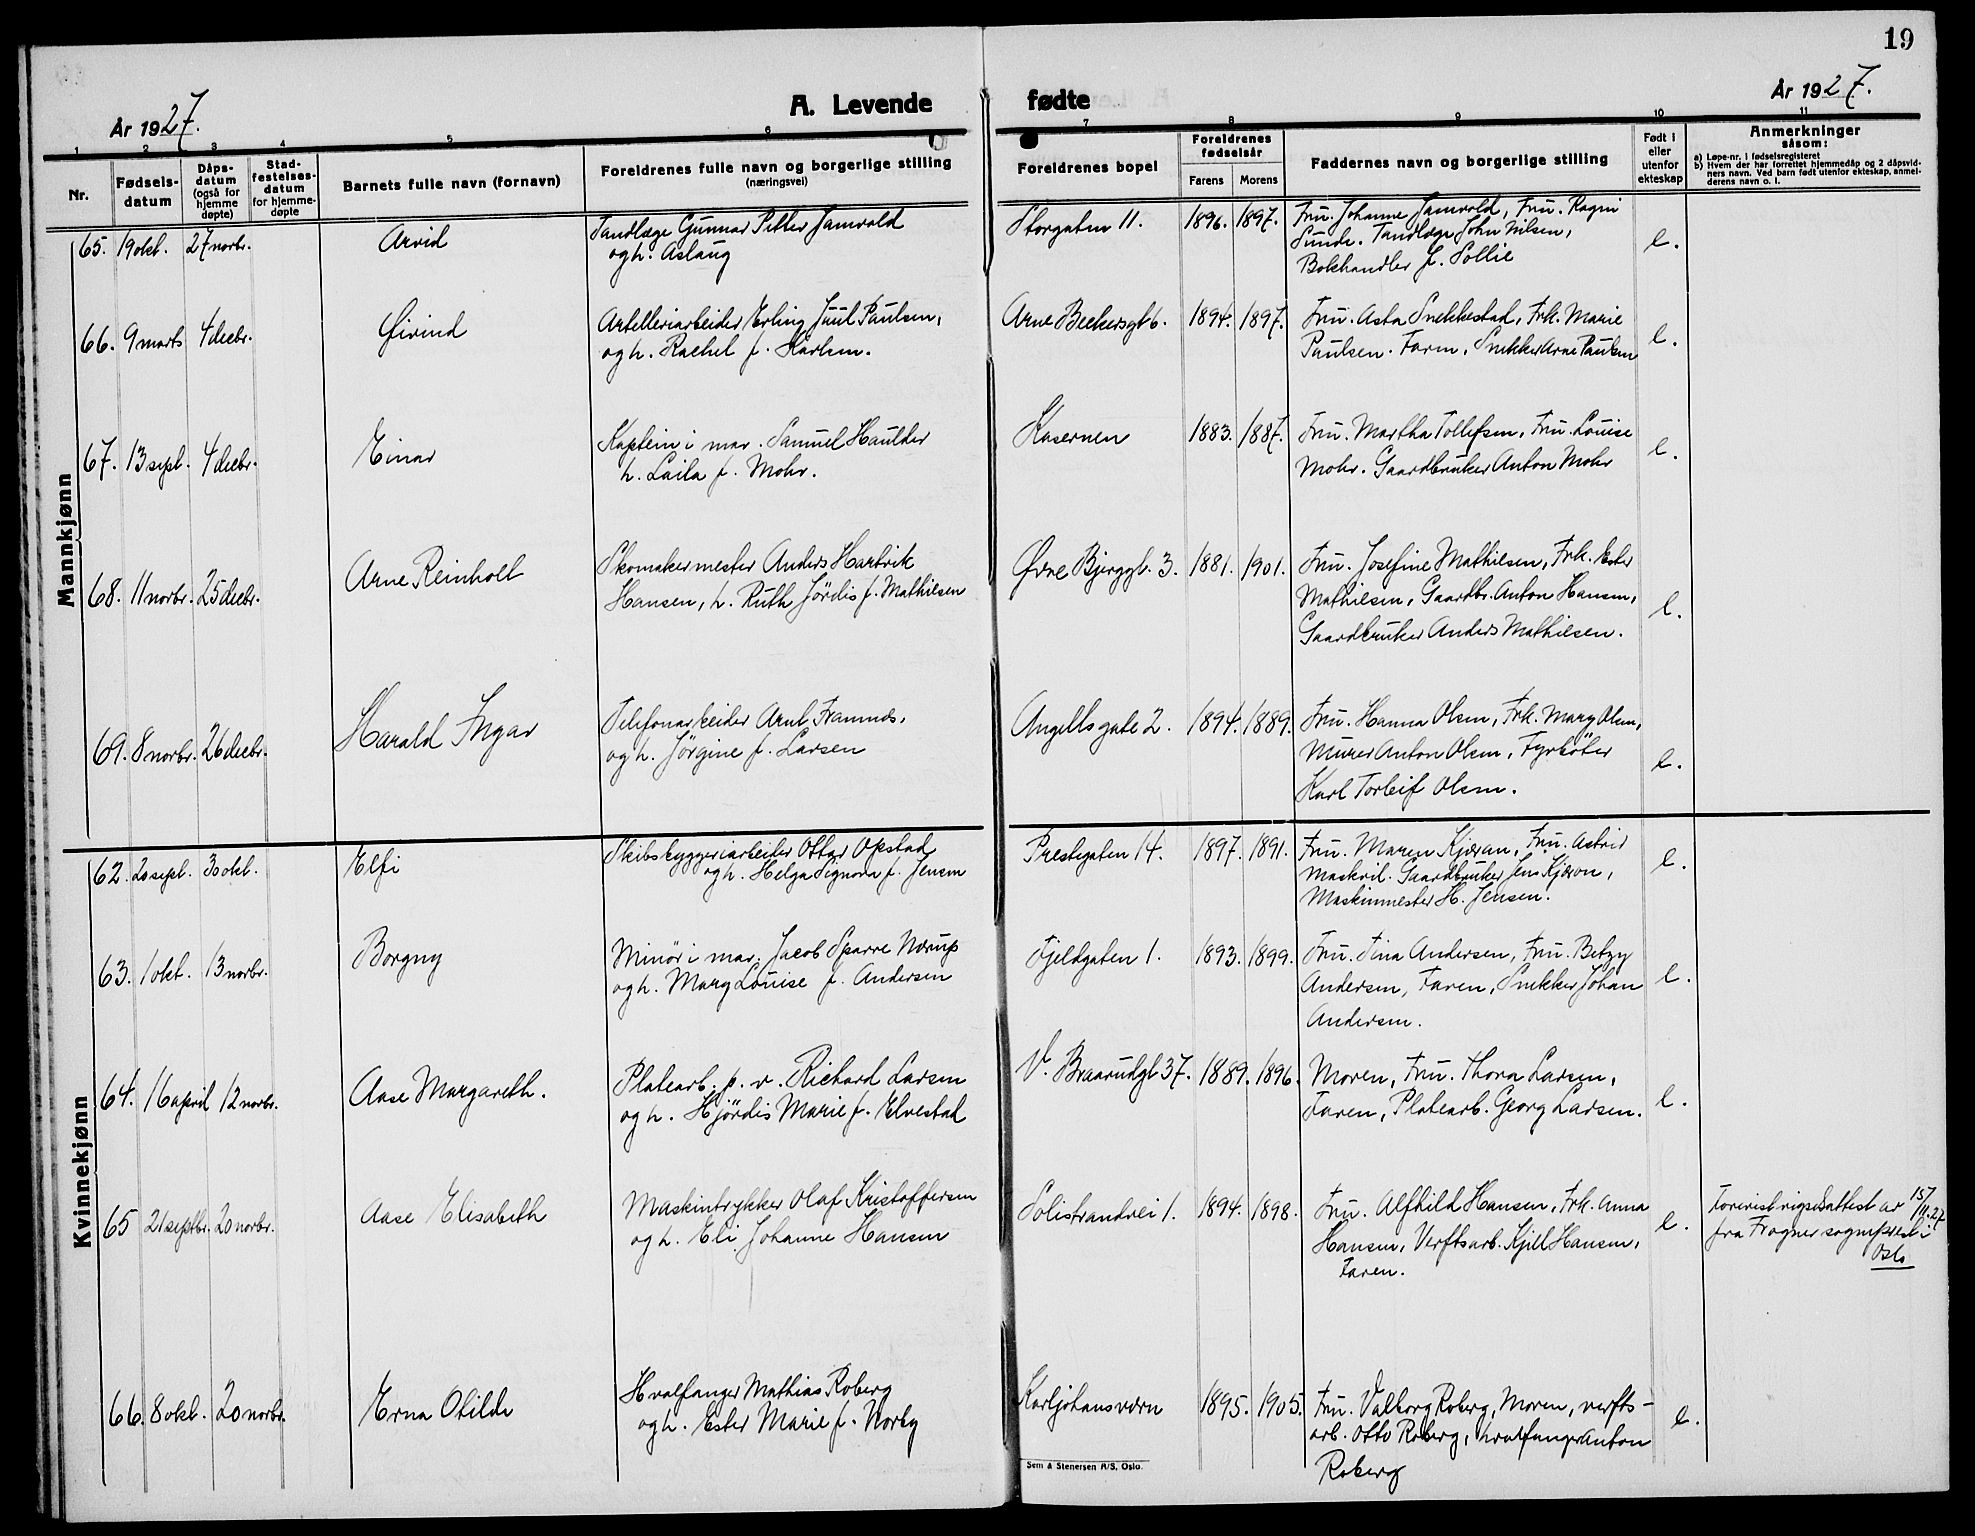 19
År 1927.
A. Levende fødte
År 1927.
1 2 3 4 5 6 7 8 9 10 11
Nr.
Fødsels-
datum
Dåps-
datum
(også for
hjemme
døpte)
Stad-
festelses-
datum
for hjemme-
døpte
Barnets fulle navn (fornavn)
Foreldrenes fulle navn og borgerlige stilling
(næringsvei)
Foreldrenes bopel
Foreldrenes
fødselsår
Farens Morens
Faddernes navn og borgerlige stilling
Født i
eller
utenfor
ekteskap
Anmerkninger
såsom:
a) Løpe-nr. i fødselsregisteret
b) Hvem der har forrettet hjemmedåp og 2 dåpsvid-
ners navn. Ved barn født utenfor ekteskap, anmel-
derens navn o. l.
Mannkjønn
65. 19 okt. 27 novbr. Arvid
Tandlæge Gunnar Petter Jamvold
og h. Aslaug
Storgaten 11. 1896. 1897.
Fru. Johanne Jamvold, Fru. Ragni
Sunde. Tandlæge John Nilsen,
Bokhandler J. Sollie
e.
66. 9 marts 4 decbr. Øivind
Artelleriarbeider Erling Juul Paulsen,
og h. Rachel f. Karlsen.
Arne Beckersgt 6. 1894. 1897.
Fru. Asta Snekkestad, Frk. Marie
Paulsen. Faren, Snekker Arne Paulsen
e.
67. 13 sept. 4 decbr. Einar
Kaptein i mar. Samuel Haulder
h. Laila f. Mohr.
Kasernen 1883. 1887.
Fru. Martha Tollefsen, Fru. Louise
Mohr. Gaardbruker Anton Mohr
e.
68. 11 novbr. 25 decbr. Arne Reinholt
Skomakermester Anders Hartvik
Hansen, h. Ruth Jördis f. Mathiesen
Øvre Bjerggt. 3. 1881. 1901.
Fru. Josefine Mathiesen, Frk. Ester
Mathiesen, Gaardbr. Anton Hansen,
Gaardbruker Anders Mathiesen.
e.
69. 8 novbr. 26 decbr. Harald Ingar
Telefonarbeider Arnt Framnes,
og h. Jörgine f. Larsen
Angells gate 2. 1894. 1889.
Fru. Hanna Olsen, Frk. Mary Olsen,
Murer Anton Olsen, Fyrböter
Karl Torleif Olsen.
e.
Kvinnekjønn
62. 20 sept. 30 okt. Elfi
Skibsbyggeriarbeider Ottar Opstad
og h. Helga Signora f. Jensen
Prestegaten 14. 1897. 1891.
Fru. Maren Kjæran, Fru. Astrid
Maskvil. Gaardbruker Jens Kjæran,
Maskinmester H. Jensen.
e.
63. 1 okt. 13 novbr. Borgny
Minör i mar. Jacob Sparre Nærup
og h. Mary Louise f. Andersen
Fjeldgaten 1. 1893. 1899.
Fru. Tina Andersen, Fru. Betzy
Andersen, Faren, Snekker Johan
Andersen.
e.
64. 16 april 12 novbr. Aase Margareth.
Platearb. p. v. Richard Larsen
og h. Hjördis Marie f. Elvestad
V. Braarudgt 37. 1889. 1896.
Moren, Fru. Thora Larsen,
Faren, Platearb. Georg Larsen.
e.
65 21 septbr. 20 novbr. Aase Elisabeth
Maskintrykker Olaf Kristoffersen
og h. Eli Johanne Hansen
Solistrandvei 1. 1894. 1898.
Fru. Alfhild Hansen, Frk. Anna
Hansen, Verftsarb. Kjell Hansen,
Faren.
e.
Forevist vigselsattest av 15/11.27
fra Frogner sogneprest i
Oslo
66. 8 okt. 20 novbr. Erna Otilde
Hvalfanger Mathias Roberg
og h. Ester Marie f. Norby
Karljohansvern 1895. 1905.
Fru. Valborg Roberg, Moren, verfts-
arb. Otto Roberg, hvalfanger Anton
Roberg
e.
Sem & Stenersen A/S, Oslo.